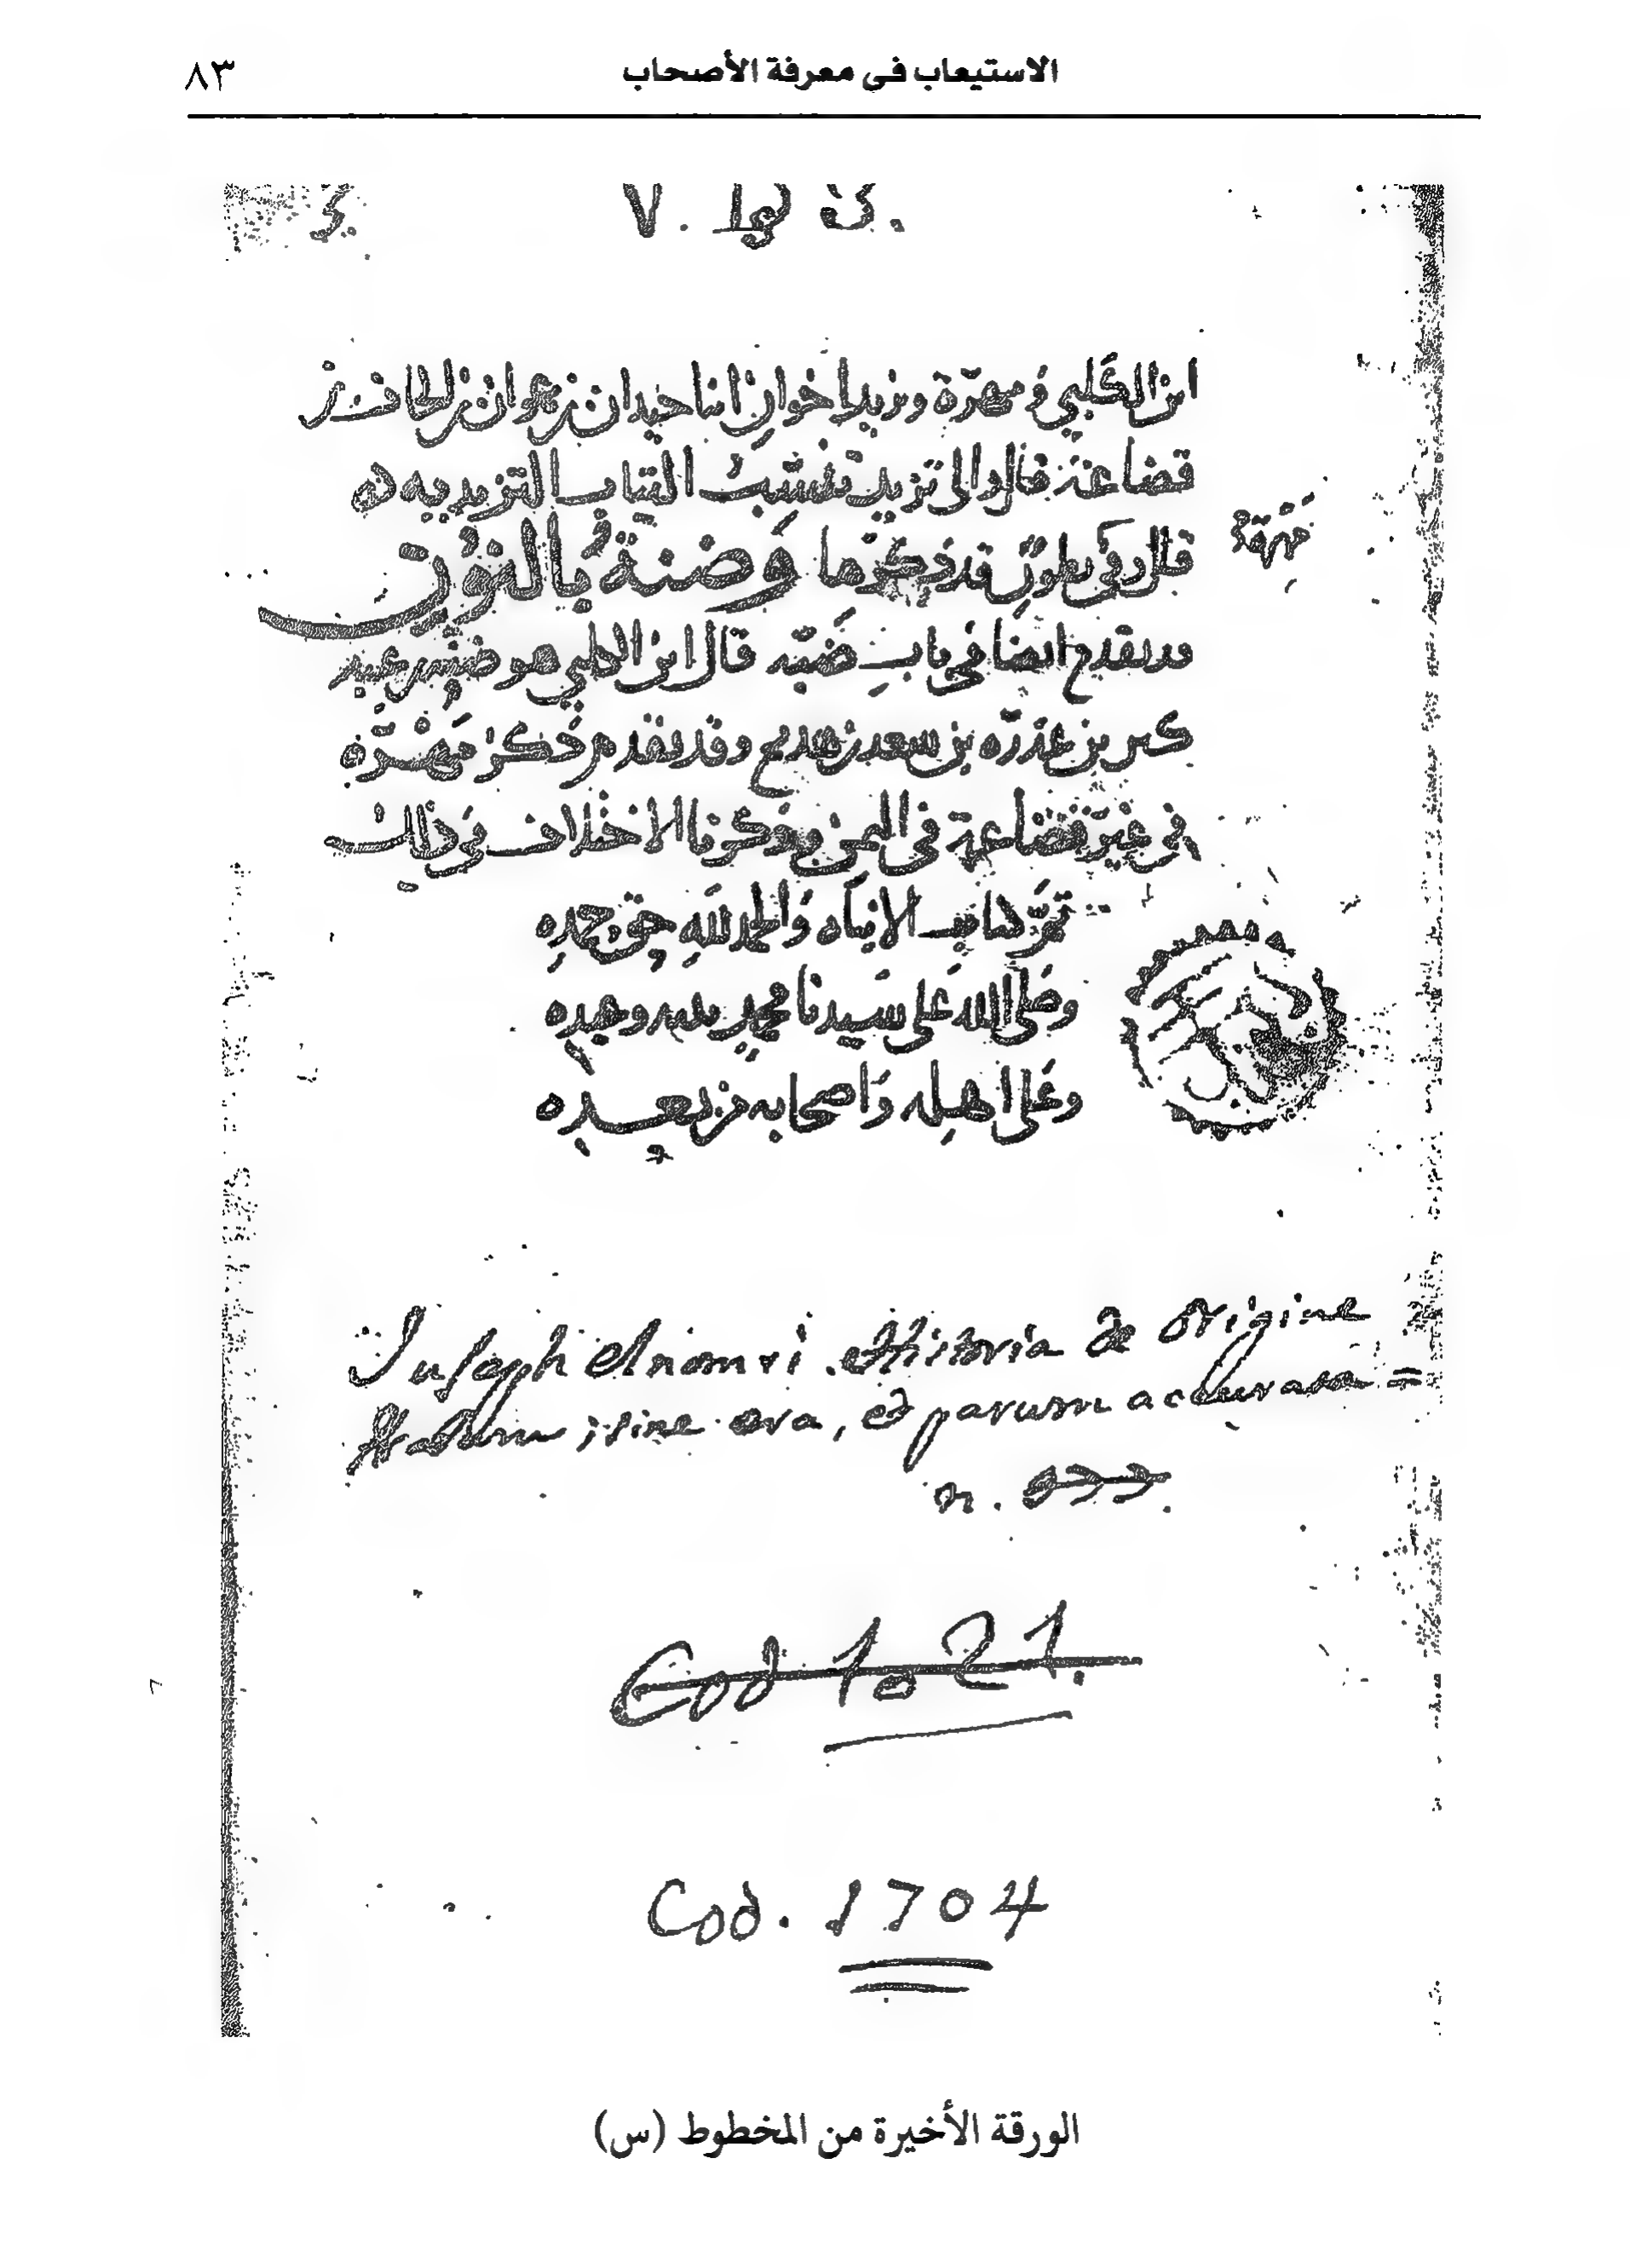 الاستيعاب فى معرفة الأصحاب
٨٣
ابن الكلبي ومهرة وتزيد اخوان ابنا حيدان بن عمران بن الحاف بن
قضاعة قال والى تزيد تنسب الثياب التزيديه
قال وفى بطون قد ذكرتها وضنة بالنون
مهرة
قد تقدم ايضا في باب ضبه قال ابن الكلبي هو ضنه بن عبد
كبير بن عذرة بن سعد بن هديم وقد تقدم ذكر مهرة
في غير قضاعة في اليمن وذكرنا الاختلاف في ذلك
تم كتاب الانباه والحمد لله حق حمده
وصلى الله على سيدنا محمد نبيه وعبده
وعلى اهله واصحابه من بعده
Juseph Anomri Historia de Origine
Arabum ; sine ora, et parum accurata =
n. 977.
Cod 1021.
Cod. 1704
الورقة الأخيرة من المخطوط (س)